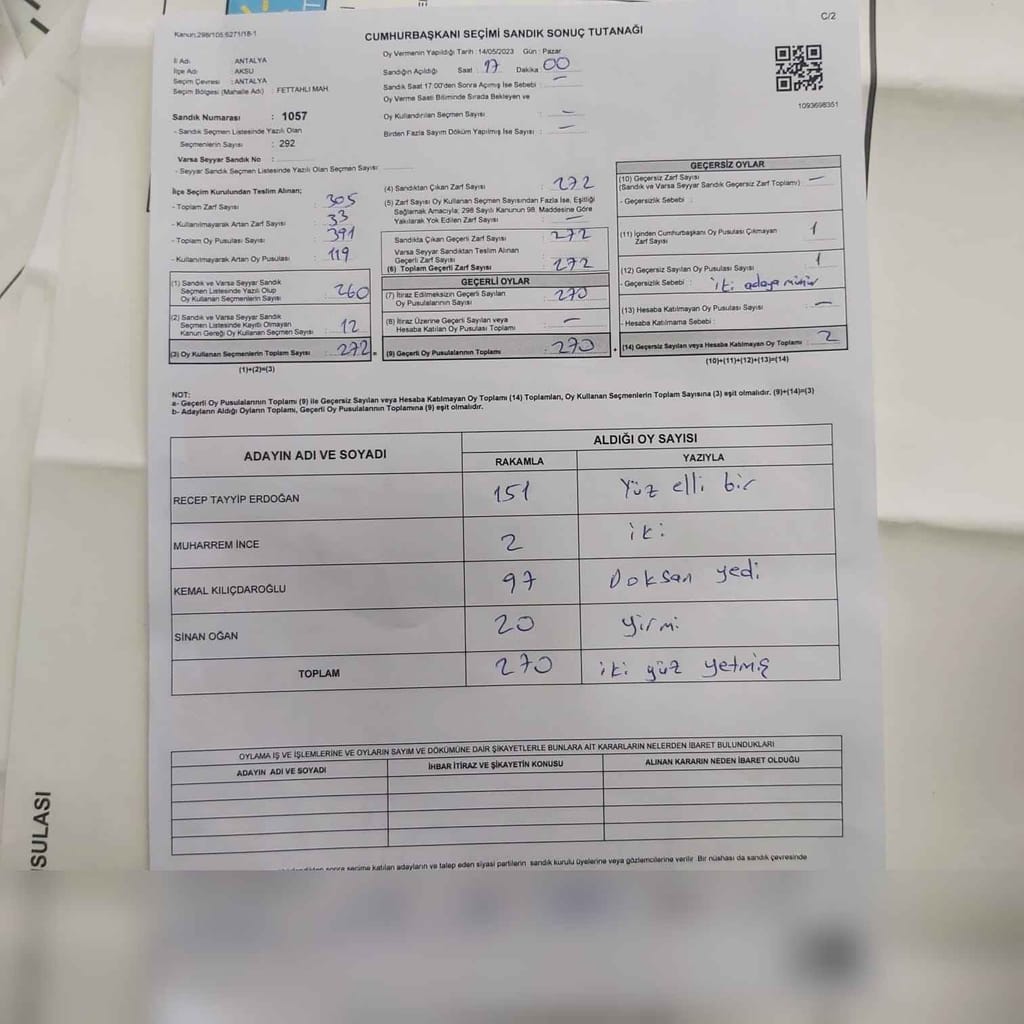 C/2
Kanun:298/105,6271/18-1
CUMHURBAŞKANI SEÇİMİ SANDIK SONUÇ TUTANAĞI
İl Adı : ANTALYA
İlçe Adı : AKSU
Seçim Çevresi : ANTALYA
Seçim Bölgesi (Mahalle Adı) : FETTAHLI MAH.
Sandık Numarası : 1057
- Sandık Seçmen Listesinde Yazılı Olan
Seçmenlerin Sayısı : 292
Varsa Seyyar Sandık No :
- Seyyar Sandık Seçmen Listesinde Yazılı Olan Seçmen Sayısı
Oy Vermenin Yapıldığı Tarih : 14/05/2023 Gün : Pazar
Sandığın Açıldığı Saat : 17 Dakika : 00
Sandık Saat 17.00'den Sonra Açmış İse Sebebi : —
Oy Verme Saati Bitiminde Sırada Bekleyen ve
Oy Kullandırılan Seçmen Sayısı : —
Birden Fazla Sayım Döküm Yapılmış İse Sayısı : —
1093698351
İlçe Seçim Kurulundan Teslim Alınan;
- Toplam Zarf Sayısı : 305
- Kullanılmayarak Artan Zarf Sayısı : 33
- Toplam Oy Pusulası Sayısı : 391
- Kullanılmayarak Artan Oy Pusulası : 119
(1) Sandık ve Varsa Seyyar Sandık
Seçmen Listesinde Yazılı Olup
Oy Kullanan Seçmenlerin Sayısı : 260
(2) Sandık ve Varsa Seyyar Sandık
Seçmen Listesinde Kayıtlı Olmayan
Kanun Gereği Oy Kullanan Seçmen Sayısı : 12
(3) Oy Kullanan Seçmenlerin Toplam Sayısı : 272
(1)+(2)=(3)
(4) Sandıktan Çıkan Zarf Sayısı : 272
(5) Zarf Sayısı Oy Kullanan Seçmen Sayısından Fazla İse, Eşitliği
Sağlamak Amacıyla; 298 Sayılı Kanunun 98. Maddesine Göre
Yakılarak Yok Edilen Zarf Sayısı : —
Sandıkta Çıkan Geçerli Zarf Sayısı : 272
Varsa Seyyar Sandıktan Teslim Alınan
Geçerli Zarf Sayısı
(6) Toplam Geçerli Zarf Sayısı : 272
GEÇERLİ OYLAR
(7) İtiraz Edilmeksizin Geçerli Sayılan
Oy Pusulalarının Sayısı : 270
(8) İtiraz Üzerine Geçerli Sayılan veya
Hesaba Katılan Oy Pusulası Toplamı : —
(9) Geçerli Oy Pusulalarının Toplamı : 270
GEÇERSİZ OYLAR
(10) Geçersiz Zarf Sayısı : —
(Sandık ve Varsa Seyyar Sandık Geçersiz Zarf Toplamı)
- Geçersizlik Sebebi :
(11) İçinden Cumhurbaşkanı Oy Pusulası Çıkmayan
Zarf Sayısı 1
(12) Geçersiz Sayılan Oy Pusulası Sayısı : 1
- Geçersizlik Sebebi : iki adaya mühür
(13) Hesaba Katılmayan Oy Pusulası Sayısı : —
- Hesaba Katılmama Sebebi :
(14) Geçersiz Sayılan veya Hesaba Katılmayan Oy Toplamı : 2
(10)+(11)+(12)+(13)=(14)
NOT:
a- Geçerli Oy Pusulalarının Toplamı (9) ile Geçersiz Sayılan veya Hesaba Katılmayan Oy Toplamı (14) Toplamları, Oy Kullanan Seçmenlerin Toplam Sayısına (3) eşit olmalıdır. (9)+(14)=(3)
b- Adayların Aldığı Oyların Toplamı, Geçerli Oy Pusulalarının Toplamına (9) eşit olmalıdır.
ADAYIN ADI VE SOYADI ALDIĞI OY SAYISI
RAKAMLA YAZIYLA
RECEP TAYYİP ERDOĞAN 151 Yüz elli bir
MUHARREM İNCE 2 iki
KEMAL KILIÇDAROĞLU 97 Doksan yedi
SİNAN OĞAN 20 yirmi
TOPLAM 270 iki yüz yetmiş
OYLAMA İŞ VE İŞLEMLERİNE VE OYLARIN SAYIM VE DÖKÜMÜNE DAİR ŞİKAYETLERLE BUNLARA AİT KARARLARIN NELERDEN İBARET BULUNDUKLARI
ADAYIN ADI VE SOYADI İHBAR İTİRAZ VE ŞİKAYETİN KONUSU ALINAN KARARIN NEDEN İBARET OLDUĞU
sonra seçime katılan adayların ve talep eden siyasi partilerin sandık kurulu üyelerine veya gözlemcilerine verilir. Bir nüshası da sandık çevresinde
USULASI